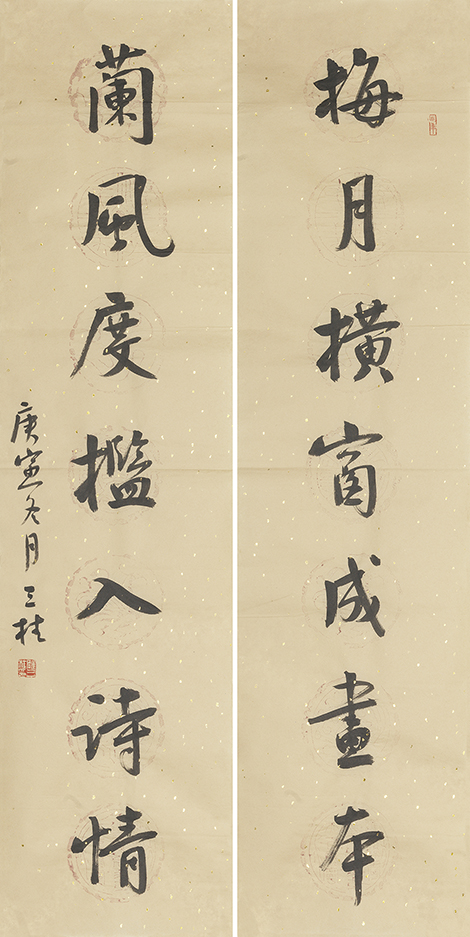 梅月横窗成畫本
蘭風度檻入诗情
庚寅冬月三桂